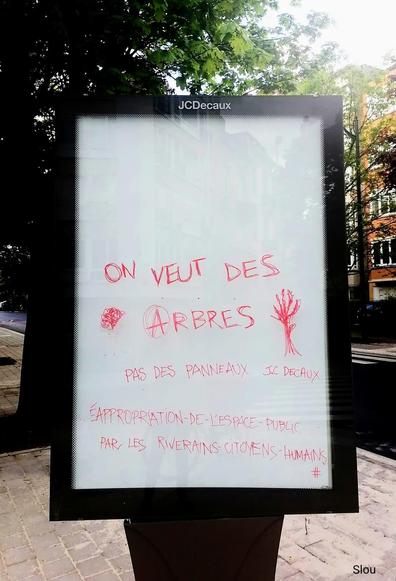 JCDecaux
ON VEUT DES
ARBRES
PAS DES PANNEAUX JC DECAUX
ÉAPPROPRIATION-DE-L'ESPACE-PUBLIC
PAR LES RIVERAINS-CITOYENS-HUMAINS
#
Slou